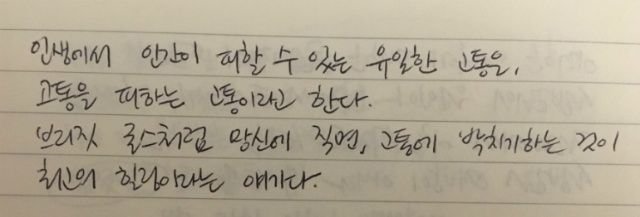 인생에서 인간이 피할 수 있는 유일한 고통은,
고통을 피하는 고통이라고 한다.
브리짓 존스처럼 망신에 직면, 고통에 박치기하는 것이
최고의 힐링이라는 얘기다.